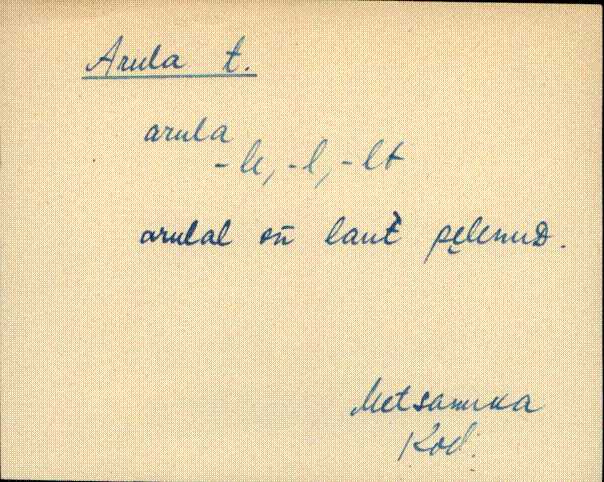 Arula t.
arula
-le, -l, -lt
arulal on̄ laut̀ pęlenuD.
Metsanuka
Kod.